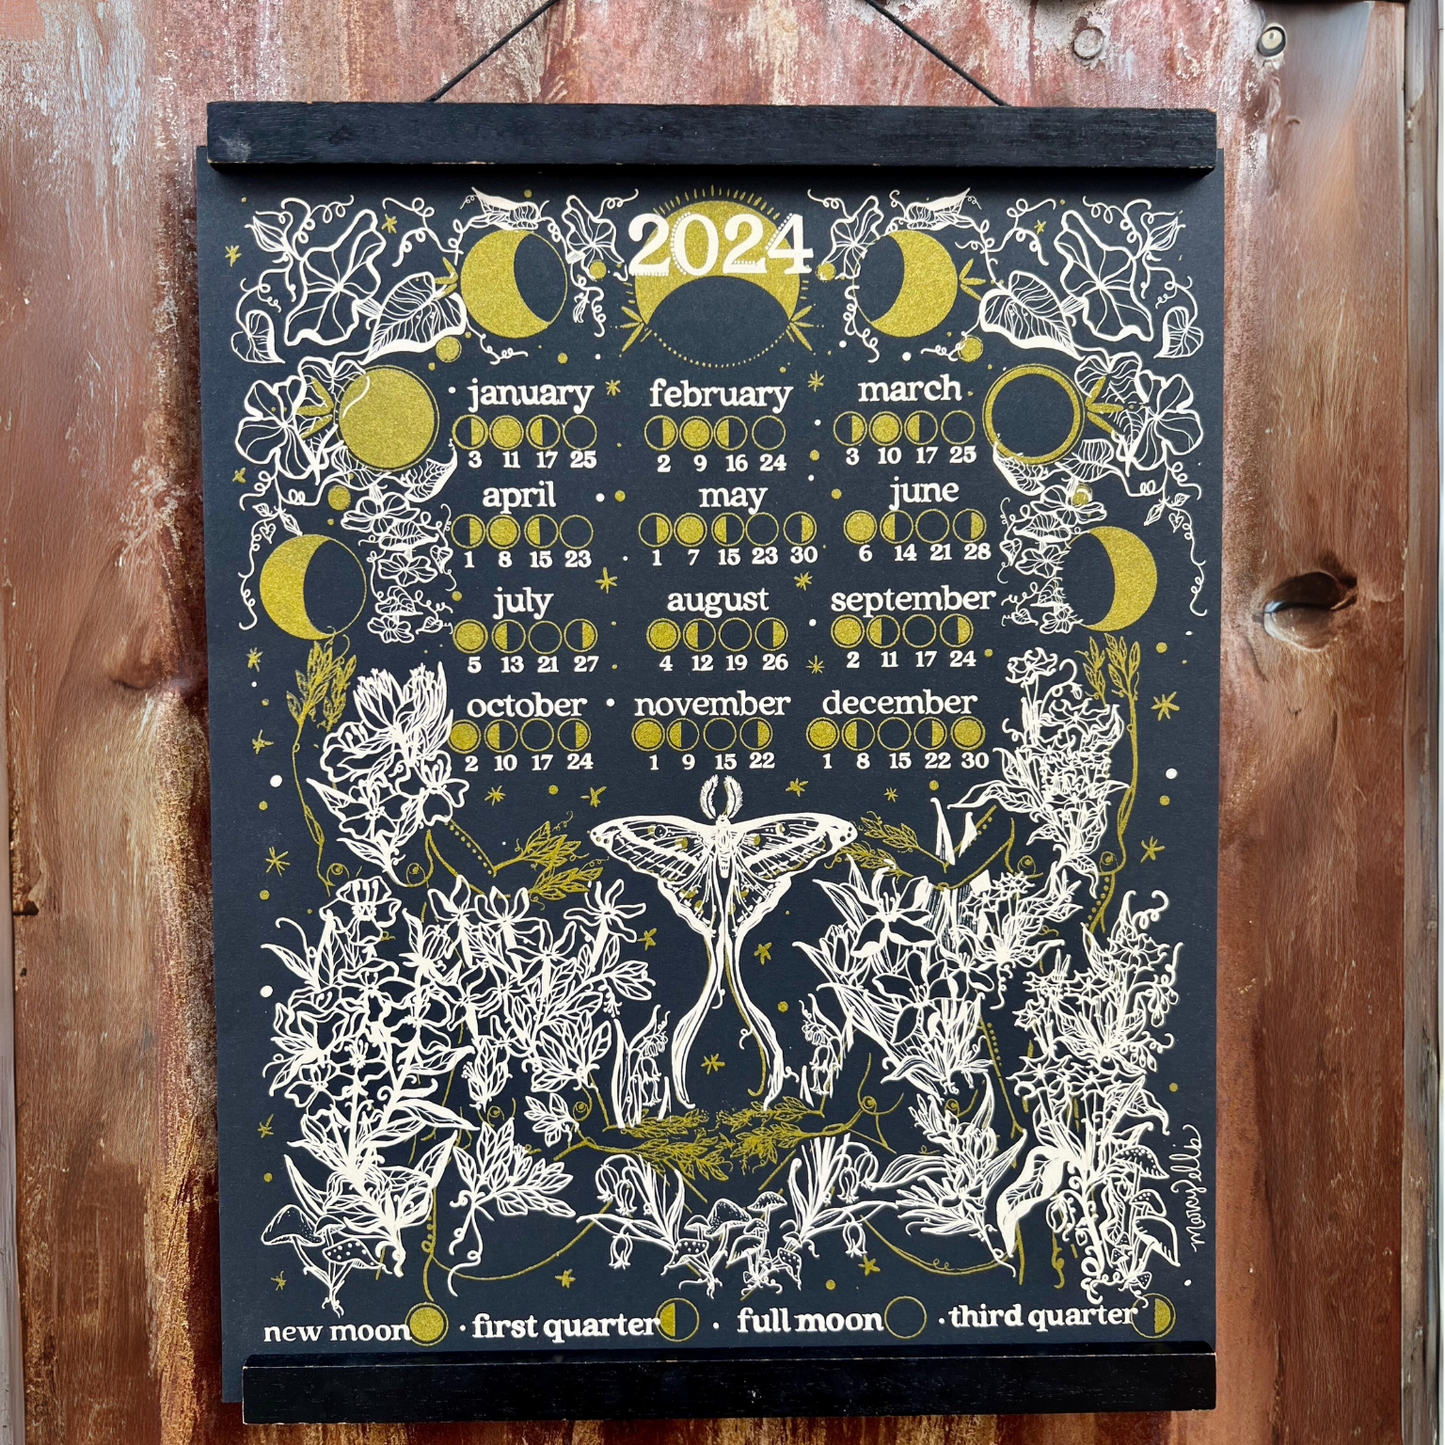 2024
january february march
3 11 17 25 2 9 16 24 3 10 17 25
april may june
1 8 15 23 1 7 15 23 30 6 14 21 28
july august september
5 13 21 27 4 12 19 26 2 11 17 24
october november december
2 10 17 24 1 9 15 22 1 8 15 22 30
Mary Ellis
new moon first quarter full moon third quarter